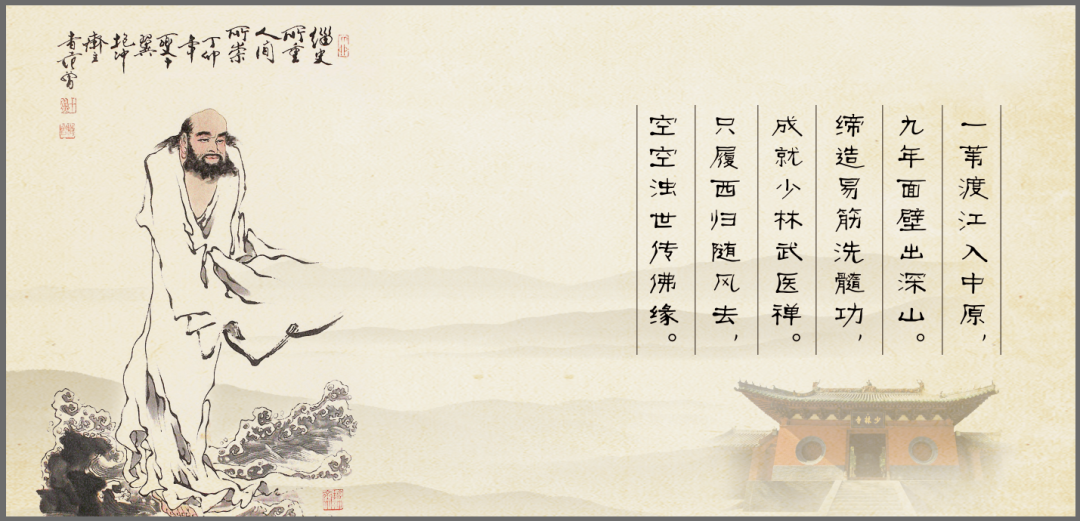 一苇渡江入中原，
九年面壁出深山。
缔造易筋洗髓功，
成就少林武医禅。
只履西归随风去，
空空浊世传佛缘。
缁史
所重
人间
所崇
丁卯
年
夏
十翼
抱冲
斋主
少林寺